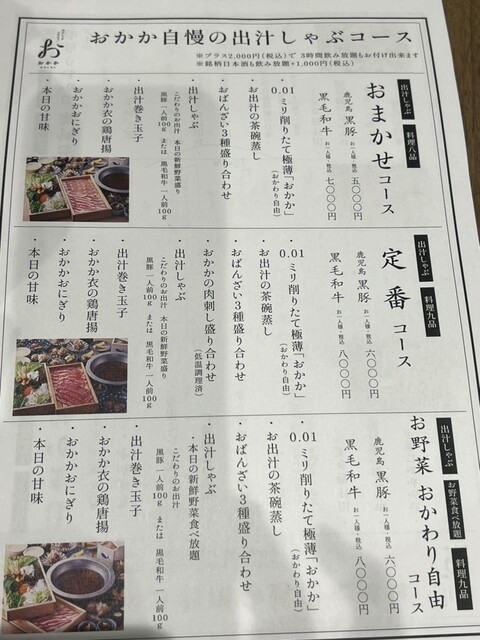 おかか
おかか自慢の出汁しゃぶコース
※プラス2,000円(税込)で 3時間飲み放題もお付け出来ます
※銘柄日本酒も飲み放題+1,000円(税込)
出汁しゃぶ
料理八品
おまかせコース
鹿児島 黒豚 お一人様・税込 五〇〇〇円
黒毛和牛 お一人様・税込 七〇〇〇円
・0.01ミリ削りたて極薄「おかか」
(おかわり自由)
・お出汁の茶碗蒸し
・おばんざい3種盛り合わせ
・出汁しゃぶ
こだわりのお出汁 本日の新鮮野菜盛り
黒豚 一人前100g または 黒毛和牛 一人前100g
・出汁巻き玉子
・おかか衣の鶏唐揚
・おかかおにぎり
・本日の甘味
出汁しゃぶ
料理九品
定番コース
鹿児島 黒豚 お一人様・税込 六〇〇〇円
黒毛和牛 お一人様・税込 八〇〇〇円
・0.01ミリ削りたて極薄「おかか」
(おかわり自由)
・お出汁の茶碗蒸し
・おばんざい3種盛り合わせ
・おかかの肉刺し盛り合わせ
(低温調理済)
・出汁しゃぶ
こだわりのお出汁 本日の新鮮野菜盛り
黒豚 一人前100g または 黒毛和牛 一人前100g
・出汁巻き玉子
・おかか衣の鶏唐揚
・おかかおにぎり
・本日の甘味
出汁しゃぶ
お野菜食べ放題
料理九品
お野菜おかわり自由コース
鹿児島 黒豚 お一人様・税込 六〇〇〇円
黒毛和牛 お一人様・税込 八〇〇〇円
・0.01ミリ削りたて極薄「おかか」
(おかわり自由)
・お出汁の茶碗蒸し
・おばんざい3種盛り合わせ
・出汁しゃぶ
・本日の新鮮野菜食べ放題
こだわりのお出汁
黒豚 一人前100g または 黒毛和牛 一人前100g
・出汁巻き玉子
・おかか衣の鶏唐揚
・おかかおにぎり
・本日の甘味